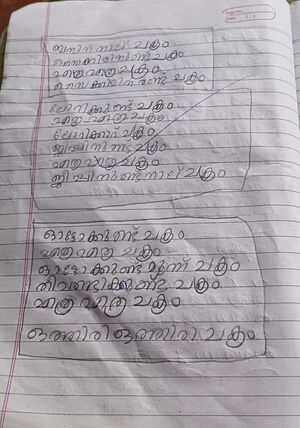 Page No.
Date
ബസിന് നാല് ചക്രം
സൈക്കിളിനുണ്ട് ചക്രം
എത്ര എത്ര ചക്രം
സൈക്കിളിന് രണ്ട് ചക്രം
ലോറിക്കുണ്ട് ചക്രം
എത്ര എത്ര ചക്രം
ലോറിക്ക് ചക്രം
ജീപ്പിനുണ്ട് ചക്രം
എത്ര എത്ര ചക്രം
ജീപ്പിനുണ്ട് നാല് ചക്രം
ഓട്ടോക്കുണ്ട് ചക്രം
എത്ര എത്ര ചക്രം
ഓട്ടോക്കുണ്ട് മൂന്ന് ചക്രം
തീവണ്ടിക്കുണ്ട് ചക്രം
എത്ര എത്ര ചക്രം
ഒത്തിരി ഒത്തിരി ചക്രം